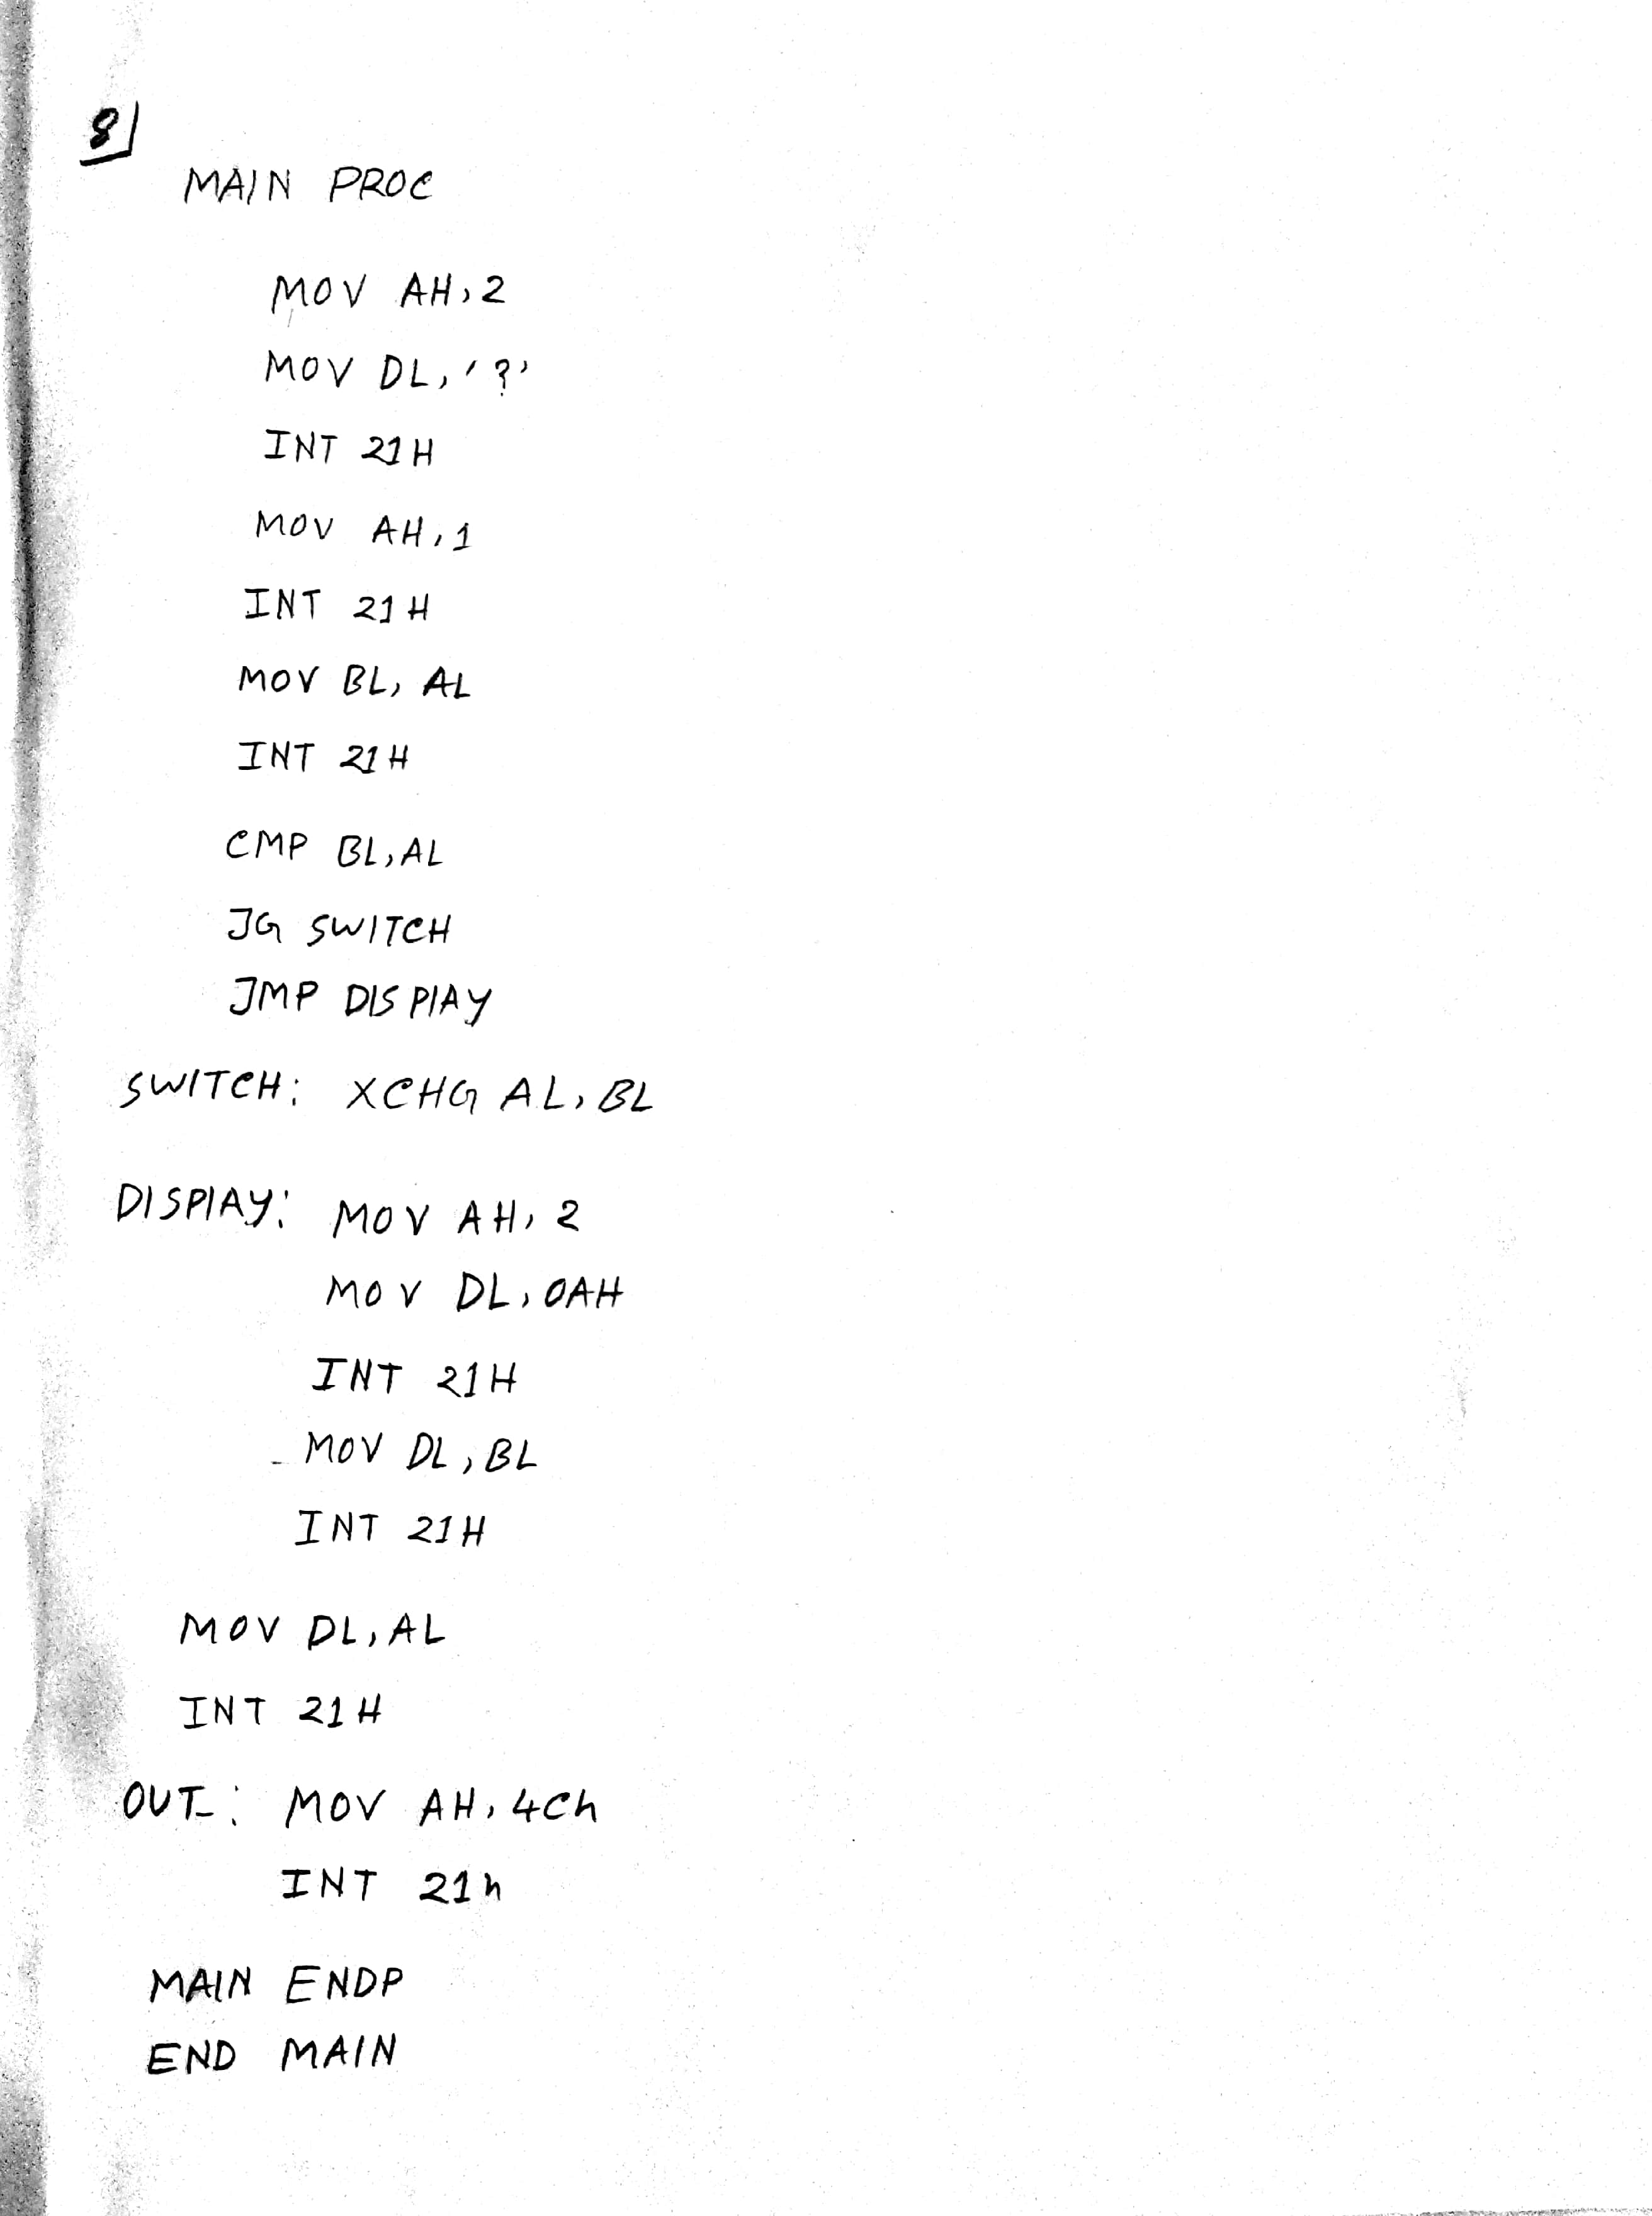 8
MAIN PROC
MOV AH, 2
MOV DL, '?'
INT 21H
MOV AH, 1
INT 21H
MOV BL, AL
INT 21H
CMP BL, AL
JG SWITCH
JMP DISPlAY
SWITCH: XCHG AL, BL
DISPlAY: MOV AH, 2
MOV DL, 0AH
INT 21H
MOV DL, BL
INT 21H
MOV DL, AL
INT 21H
OUT_: MOV AH, 4Ch
INT 21h
MAIN ENDP
END MAIN